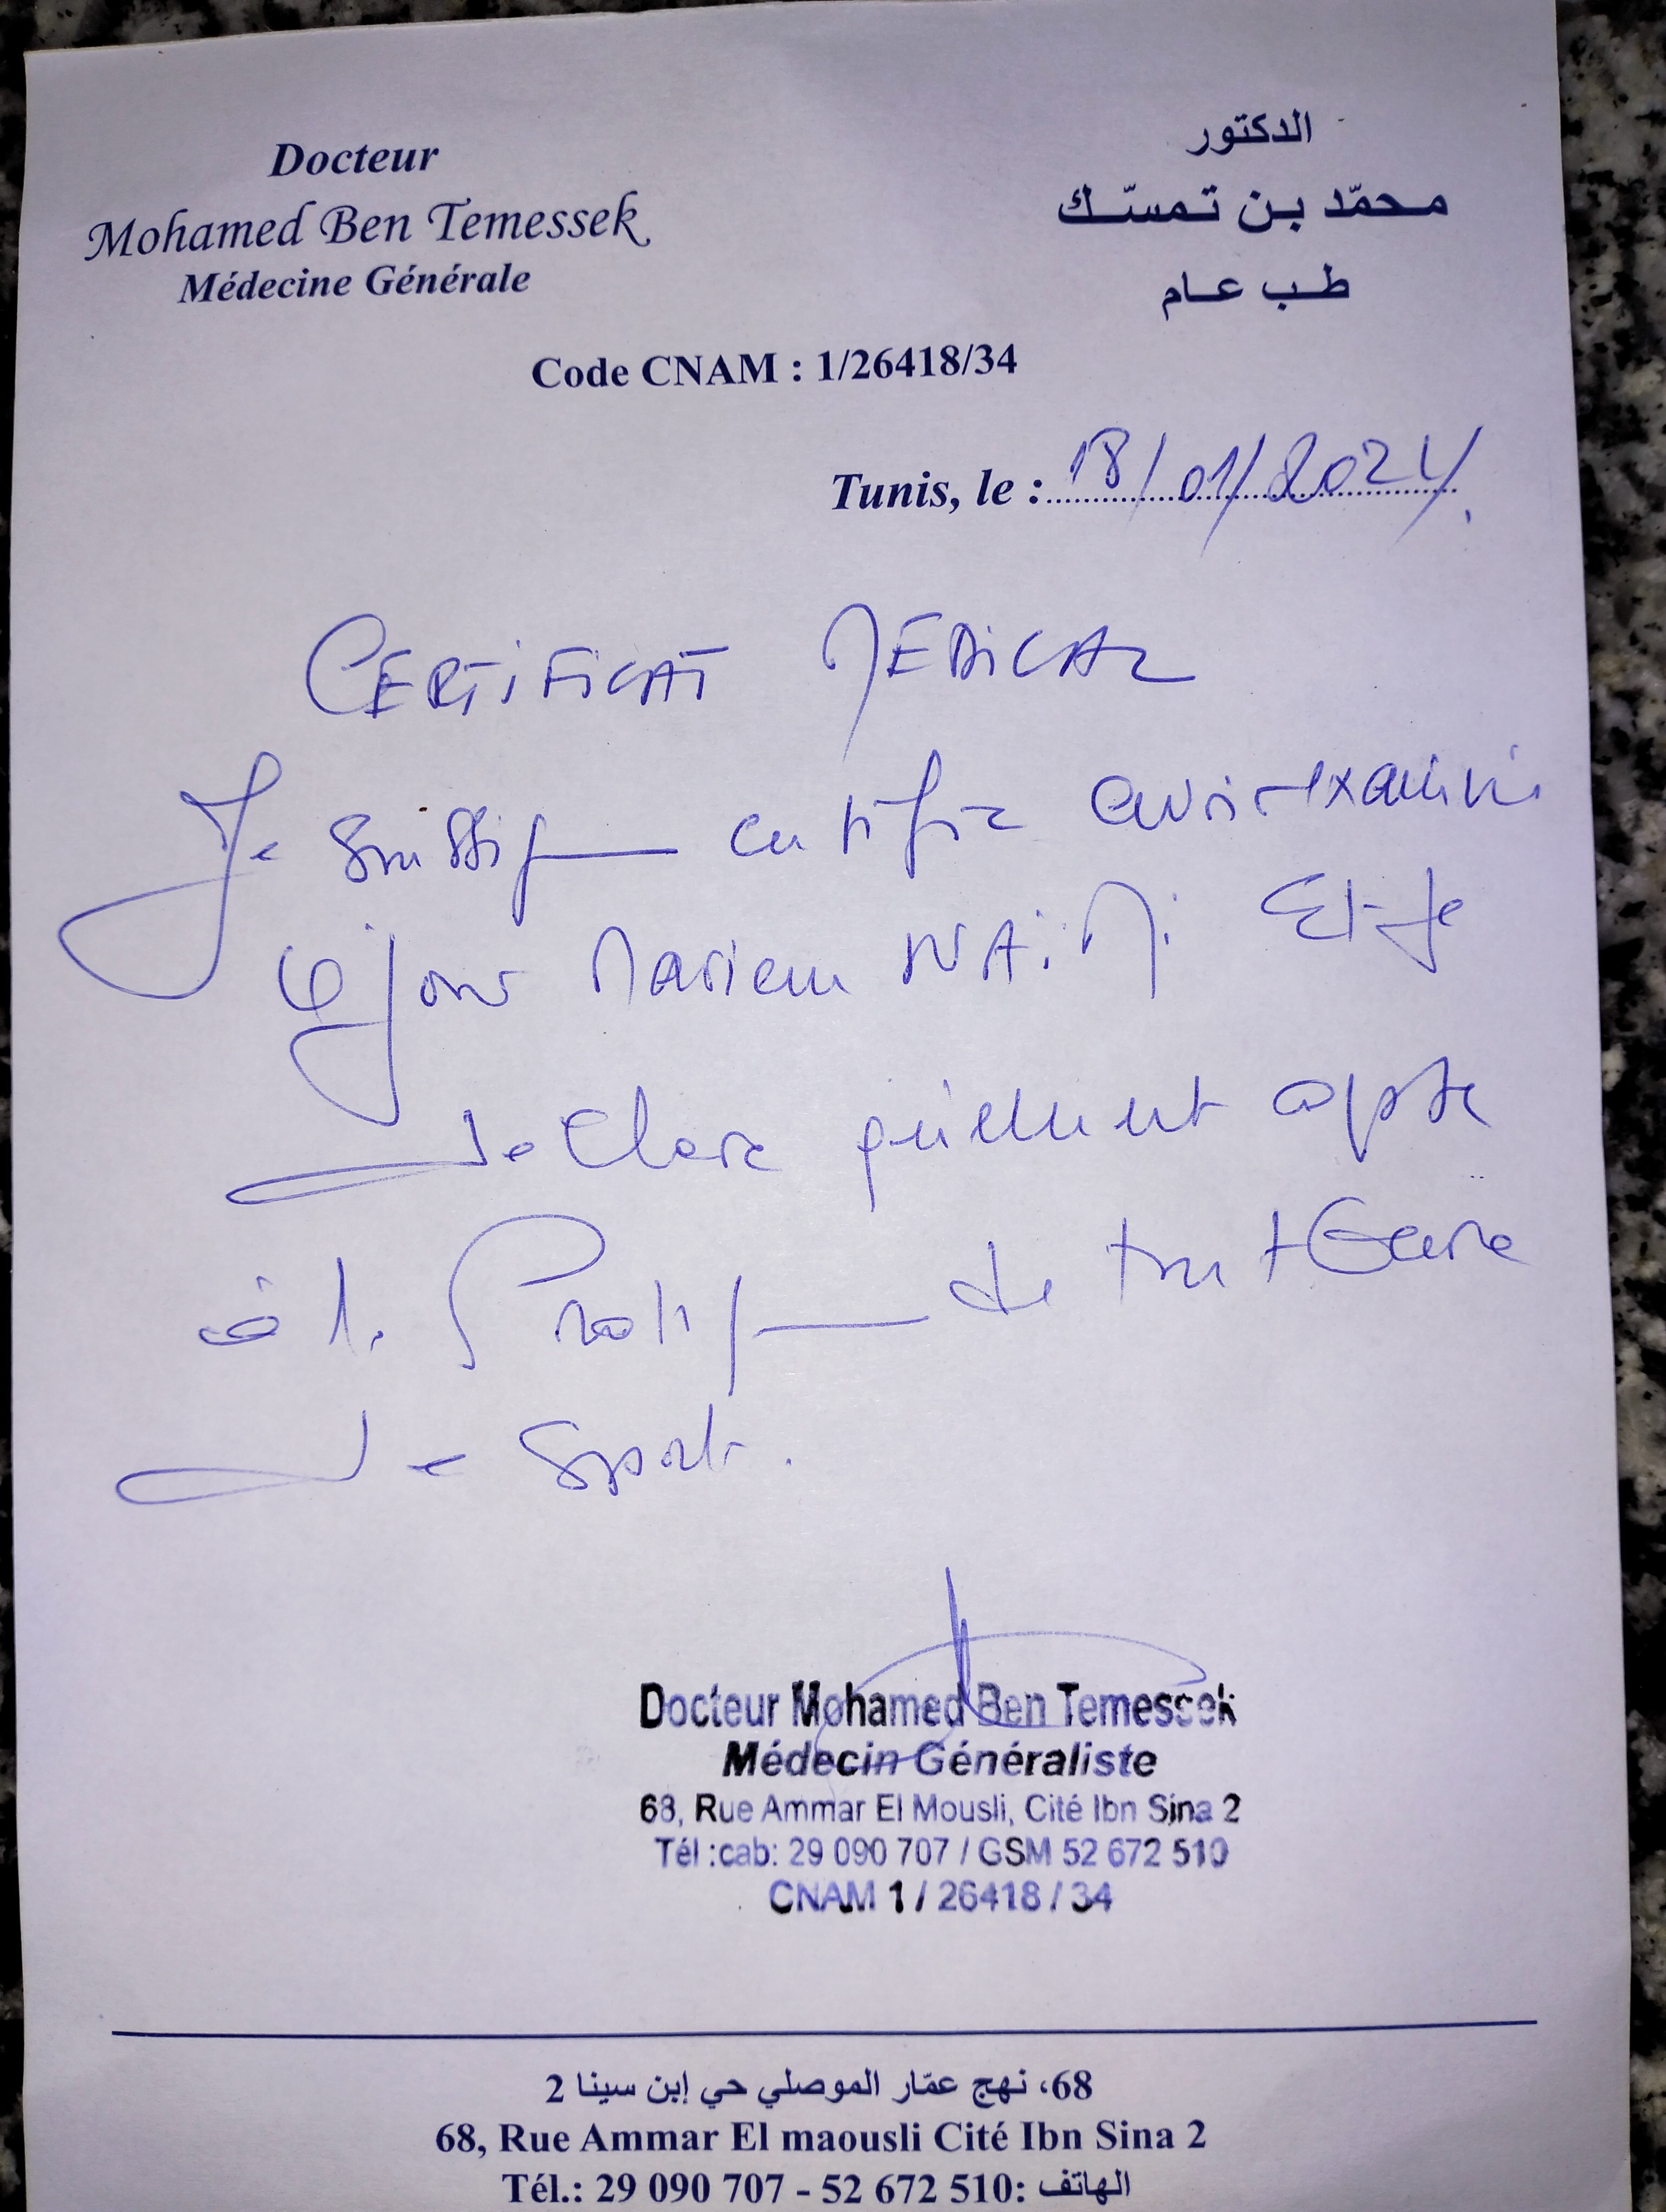 Docteur
Mohamed Ben Temessek
Médecine Générale
الدكتور
محمّد بن تمسّك
طب عام
Code CNAM : 1/26418/34
Tunis, le : 18/01/2024
CERTIFICAT MEDICAL
Je soussigné certifie avoir examiné
ce jour Mariem NAiMi Et je
déclare qu'elle est apte
à la Pratique de tout Genre
de Sport.
Docteur Mohamed Ben Temessek
Médecin Généraliste
68, Rue Ammar El Mousli, Cité Ibn Sina 2
Tél :cab: 29 090 707 / GSM 52 672 510
CNAM 1 / 26418 / 34
68، نهج عمّار الموصلي حي إبن سينا 2
68, Rue Ammar El maousli Cité Ibn Sina 2
Tél.: 29 090 707 - 52 672 510 :الهاتف